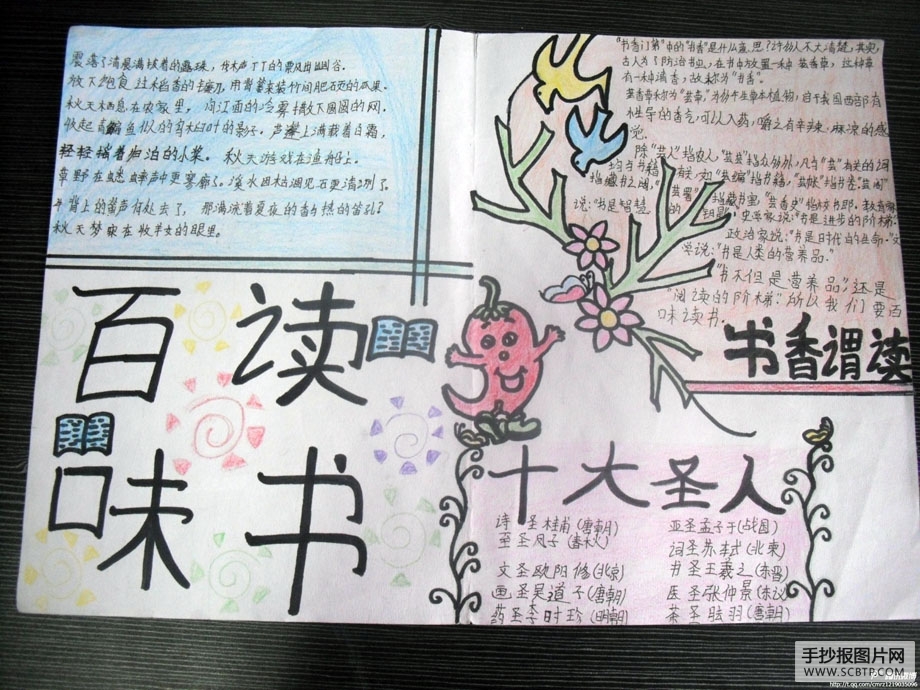 震落了清晨满披着的露珠,伐木声丁丁的飘出幽谷。
放下饱食过稻香的镰刀,用背篓来装竹间肥硕的瓜果。
秋天栖息在农家里。向江面的冷雾撒下圆圆的网,
收起青鳊鱼似的乌桕叶的影子。声篷上满载着白霜,
轻轻摇着归泊的小桨。秋天游戏在渔船上。
草野在蟋蟀声中更寥廓了。溪水因枯涸见石更清冽了。
牛背上的笛声何处去了,那满流着夏夜的香与热的笛孔?
秋天梦寐在牧羊女的眼里。
百读
味书
"书香门第"中的"书香"是什么意思?许多人不大清楚,其实,
古人为了防治书虫,在书中放置一种芸香草,这种草
有一种清香,故称为"书香"。
芸香草称为"芸草",为多年生草本植物,产于我国西部,有
特异的香气,可以入药,嚼之有辛辣、麻凉的感
觉。
除"芸人"指农人,"芸芸"指众多外,凡与"芸"有关的词
均与书籍有关,如"芸编"指书籍,
"指藏书之阁,"芸署"指藏书室,
说:"书是智慧的钥匙。"史学家说:"书是进步的阶梯。"
政治家说:"书是时代的生命。"文
学说:"书是人类的营养品。"
"书不但是营养品"还是
"阅读的阶梯"所以我们要百
味读书.
书香谓读
十大圣人
诗 圣桂甫(唐朝)
圣
文圣欧阳修(北京)
画圣吴道子(唐朝)
药圣李时珍(明朝)
亚圣孟子于(战国)
词圣苏轼(北東)
书圣王羲之(东晋)
医圣张仲景(东汉)
茶圣 羽(唐朝)
手抄报图片网
WWW.SCBTP.COM
http://t.qq.com/cmrz1219035096